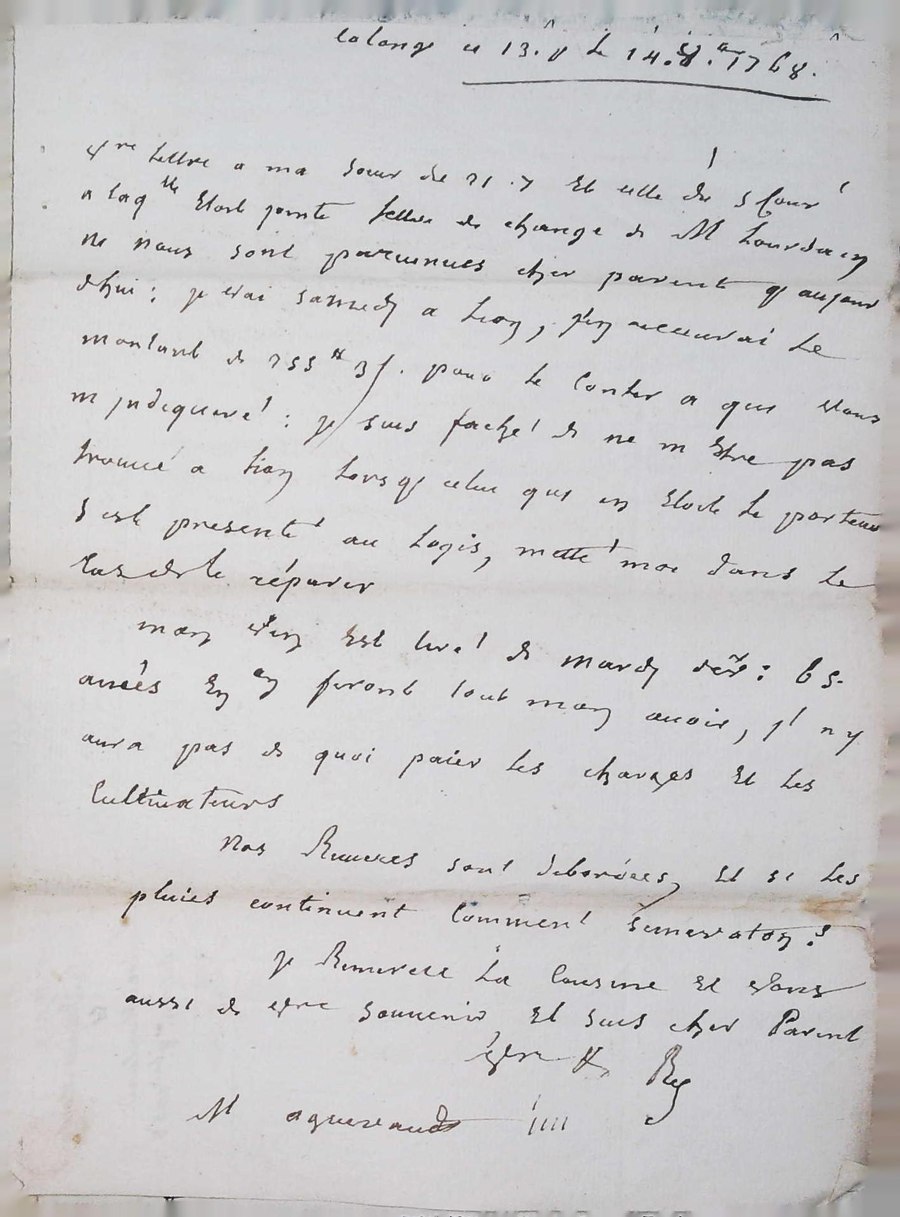 ce 13. le 14. 8. 1768.
vre lettre a ma soeur du 21. 7 et celle du s
a laqlle etoit jointe lettre de change de M Lourdain
ne nous sont parvenues cher parent q aujour
dhui ; je vrai samedy a Lion, j'en recevrai le
montant de 255 3s. pour le conter a qui vous
m jndiqueré : je suis faché de ne m etre pas
trouvé a Lion lorsq celui qui en etoit le porteur
s est presenté au logis, metté moi dans le
cas de le réparer
mon vin est tiré de mardy der : 6 5.
anées en feront tout mon avoir, jl n y
aura pas de quoi paier les charges et les
cultivateurs
nos Rivieres sont deborées, et si les
pluies continuent comment semeraton ?
je Remercie La Cousine et vous
aussi de vre souvenir et suis cher Parent
vre Rey
M aguereaud